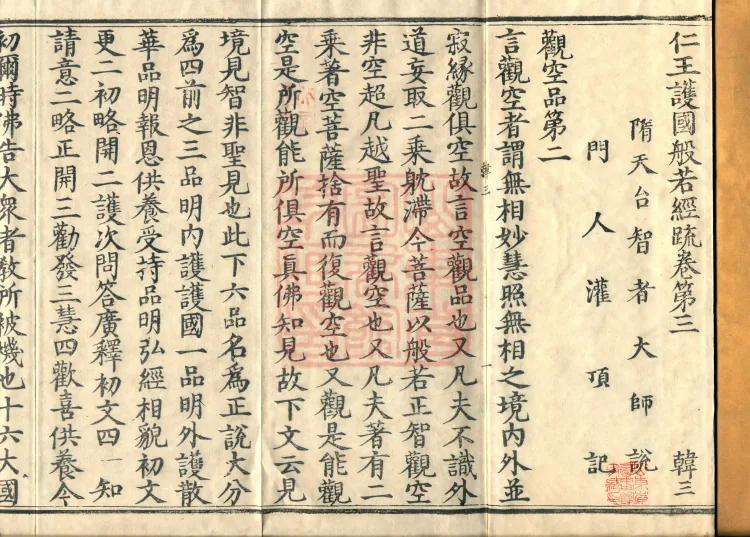 仁王護國般若經疏卷第三 韓三
隋天台智者大師說
門人灌頂記
觀空品第二
言觀空者謂無相妙慧照無相之境內外並
寂緣觀俱空故言空觀品也又凡夫不識外
道妄取二乘躭滯今菩薩以般若正智觀空
非空超凡越聖故言觀空也又凡夫著有二
乘著空菩薩捨有而復觀空也又觀是能觀
空是所觀能所俱空真佛知見故下文云見
境見智非聖見也此下六品名為正說大分
為四前之三品明內護護國一品明外護散
華品明報恩供養受持品明弘經相貌初文
更二初略開二護次問答廣釋初文四一知
請意二略正開三勸發三慧四歡喜供養今
初爾時佛告大眾者教所被機也十六大國
韓三
一